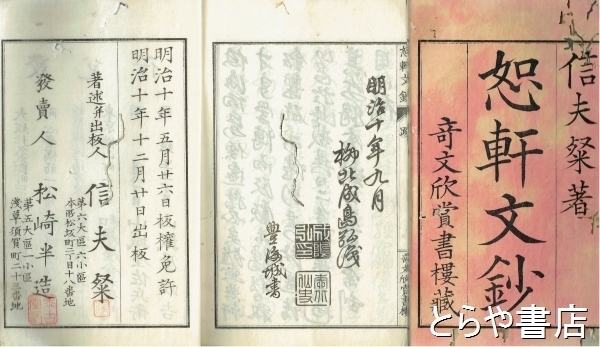 信夫粲著
恕軒文鈔
奇文欣賞書樓藏
恕軒文鈔
明治十年九月
柳北成島弘識
明治十年五月廿六日板權免許
明治十年十二月廿日出板
著述并出板人
信夫粲
第六大區六小區
本所松坂町二丁目十八番地
發賣人
松崎半造
第五大區一小區
淺草須賀町二十三番地
とらや書店